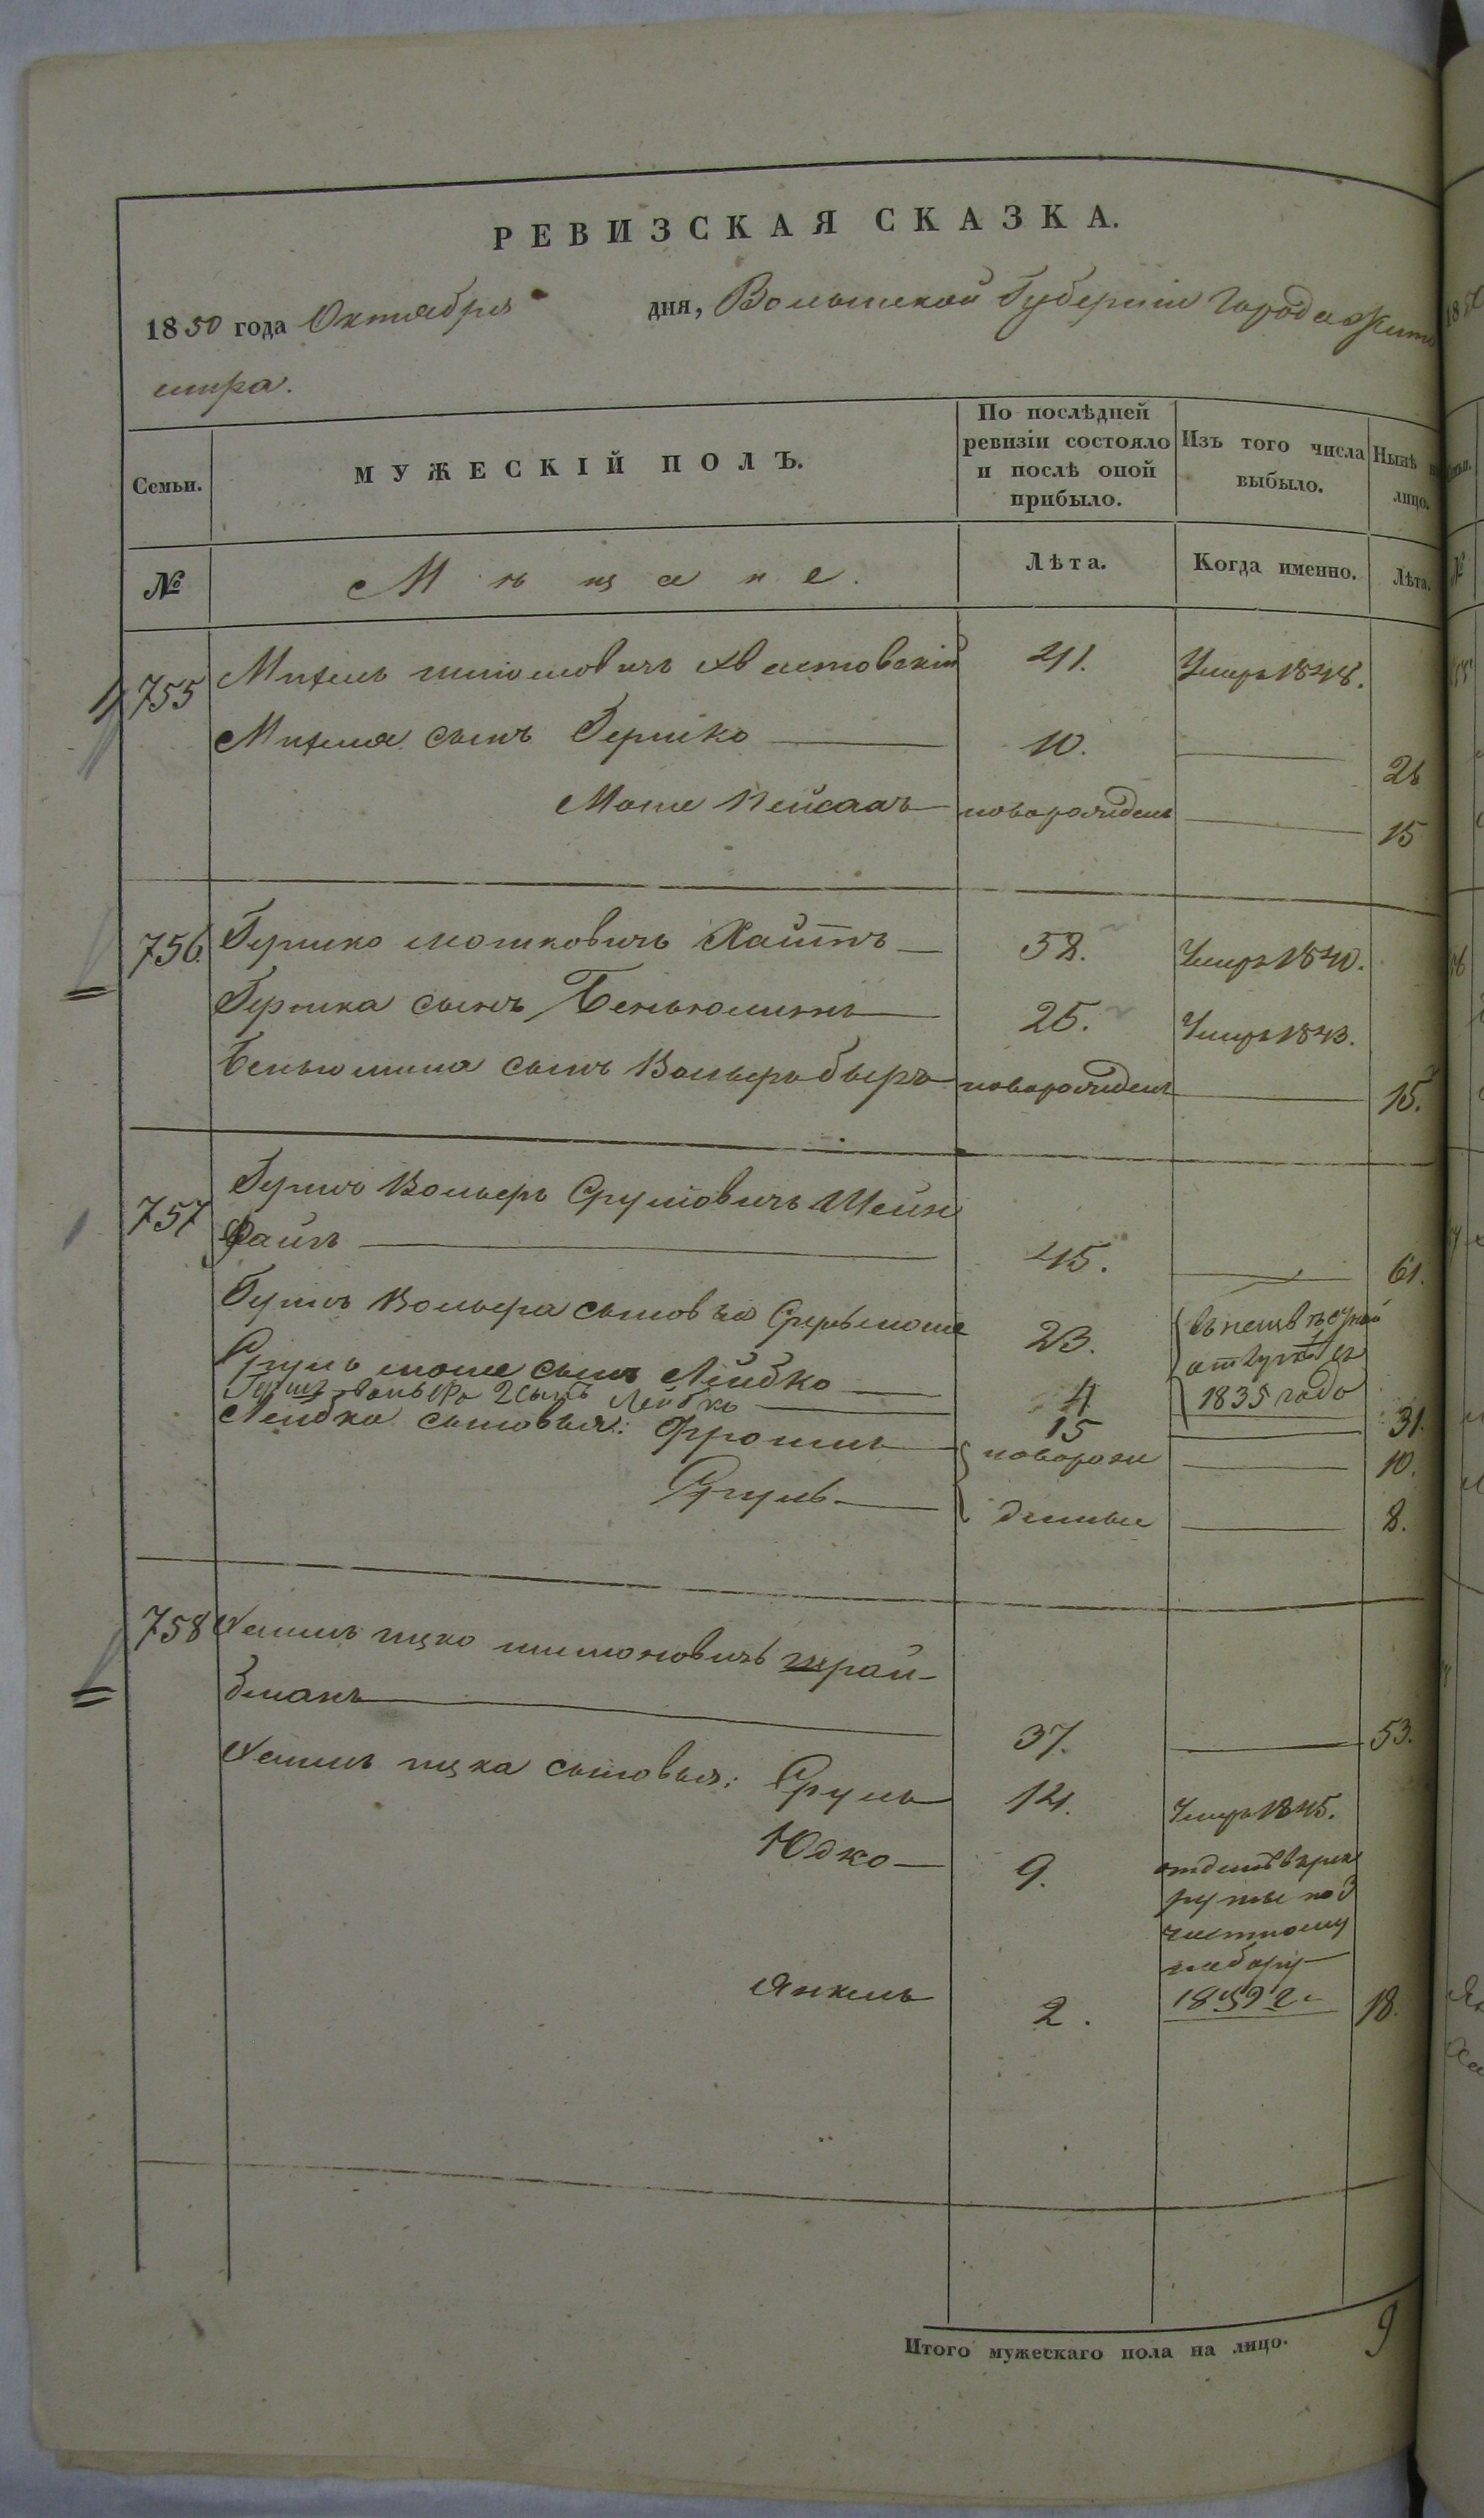 РЕВИЗСКАЯ СКАЗКА.
1850 года Октября дня, Волынской Губернiи Города Жито
мира.
Семьи. МУЖЕСКIЙ ПОЛЪ. По послѣдней ревизiи состояло и послѣ оной прибыло. Изъ того числа выбыло. Нынѣ на лицо.
№ Мѣщане. Лѣта. Когда именно. Лѣта.
755 Михель Хвастовскiй 41. Умеръ 1848.
Михеля сынъ Гершко 10. 26
Моше Пейсахъ новорожденъ 15
756. Гершко Мошковичъ Хаитъ 58. Умеръ 1840.
Гершка сынъ Беньюминъ 25. Умеръ 1843.
Беньюмина сынъ Вольфъ беръ новорожденъ 15.
757 Гершъ Вольфъ Срулiовичъ Шейн
файнъ 45. 61.
Гершъ Вольфа сыновья Срулъ моше 23. въ
Сруль моше сынъ Лейбко 4 отлучкѣ съ
Гершъ-вольфа 2 сынъ Лейбко 15 1835 года 31.
Лейбка сыновья: Фроимъ новорож 10.
Сруль денные 8.
758 Хаимъ ицко шимоновичъ Трай-
бманъ 37. 53.
Хаимъ ицка сыновья: Сруль 14. Умеръ 1845.
Юдко 9. отданъ в рек
руты по
частному
набору
Янкель 2. 18.
Итого мужескаго пола на лицо. 9